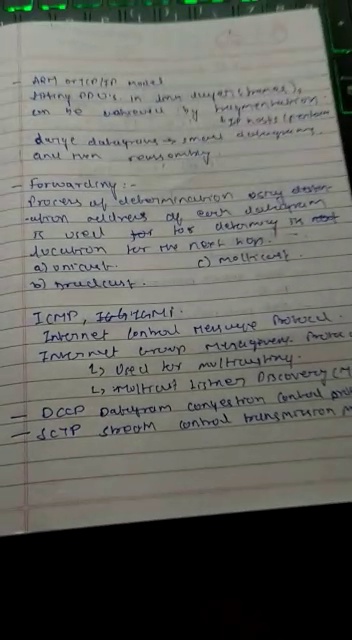 - ARM or TCP/IP model
PDU's in link layer (frames),
can be by fragmentation.
IP hosts (perform
Large datagrams → small datagrams
and then reassembly.
- Forwarding :-
Process of determination using destin-
-ation address of each datagram
is used for to determine in next
location for the next hop.
a) unicast. c) multicast.
b) broadcast.
ICMP, IGMP.
Internet Control Message Protocol.
Internet Group Management Protoco
↳ Used for multicasting.
↳ Multicast Listner Discovery (M
- DCCP Datagram congestion control pro
- SCTP stream control transmission